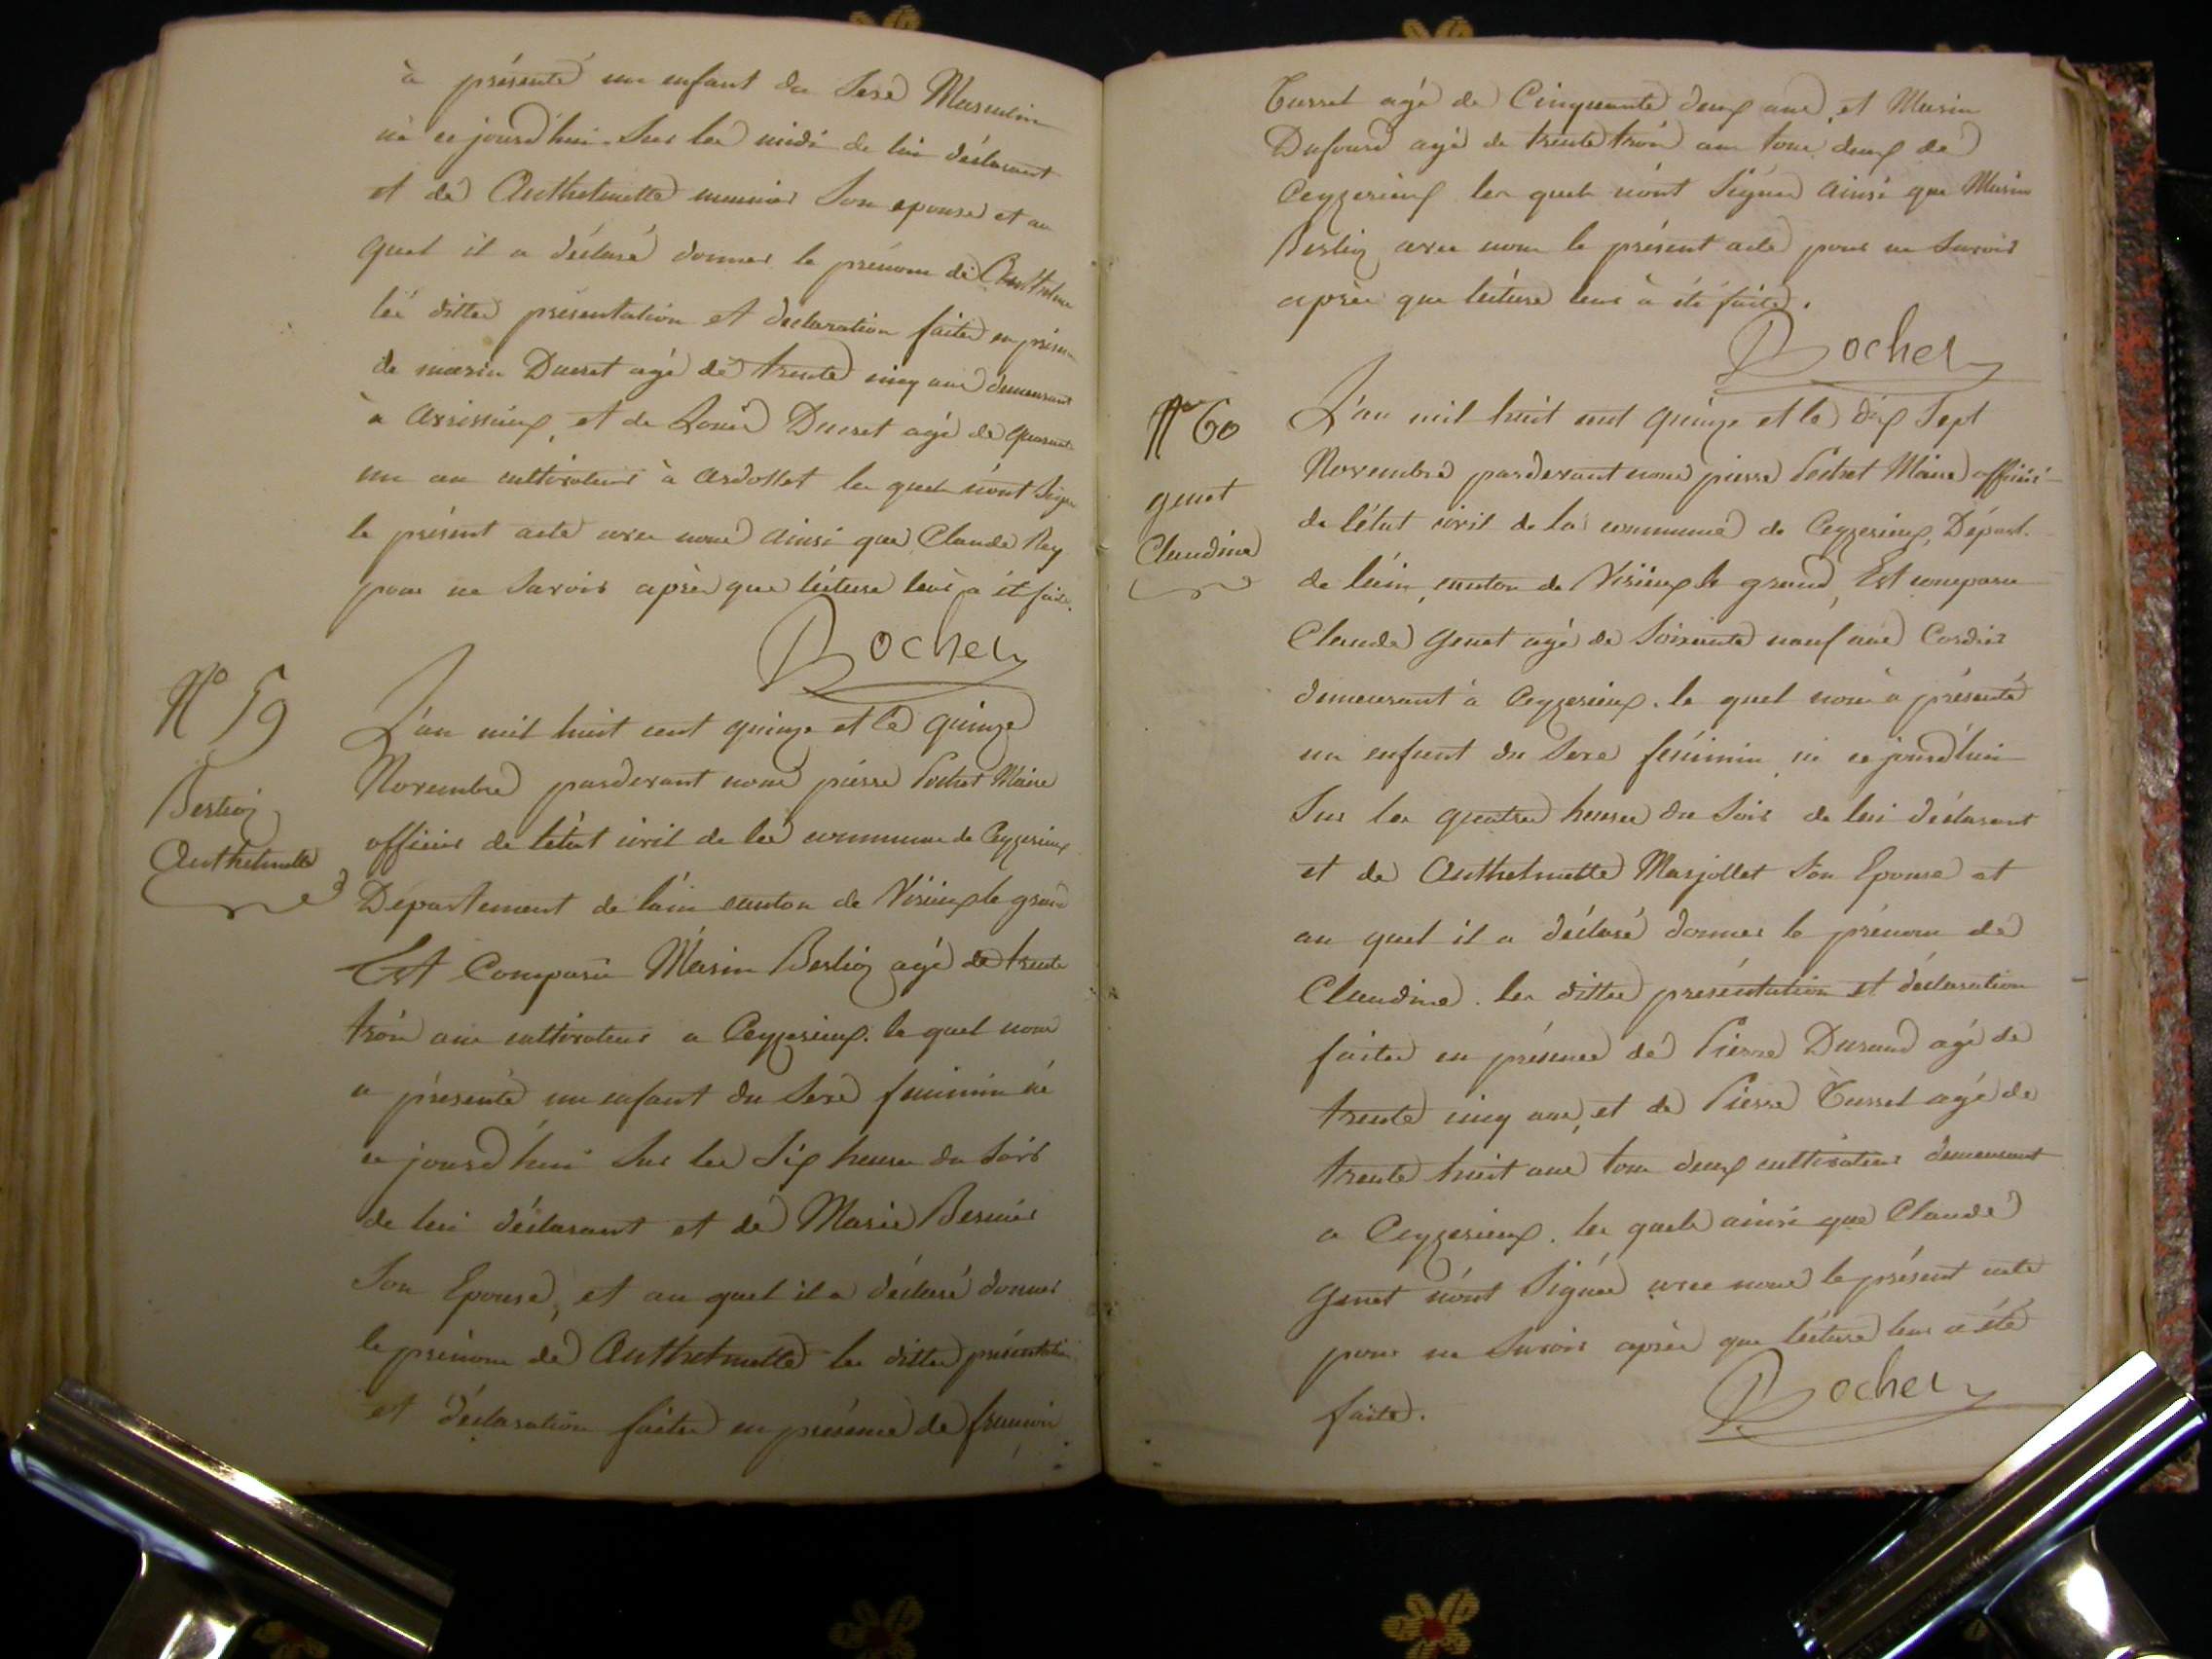 à présenté un enfant du Sexe Masculin
né ce jourd'hui Sur les midi de lui déclarant
et de Anthelmette meunier Son epouse et au
quel il a déclaré donner le prénom de Anthelme
les dittes présentation et déclaration faites en présen
de marin Ducret agé de trente cinq ans demeurant
à avrissieux, et de Louis Ducret agé de quarante
un an cultivateur à ardosset les quels n'ont Signé
le présent acte avec nous ainsi que Claude Rey
pour ne Savoir après que lecture leur a été faite.
Pochet
No 59
Berlioz
Anthelmette
L'an mil huit cent quinze et le quinze
Novembre pardevant nous pierre Pochet Maire
officier de l'état civil de la commune de Ceyzerieux
Département de l'ain canton de Virieux le grand
Est Comparu Marin Berlioz agé de trente
trois ans cultivateur a Ceyzerieux. le quel nous
a présenté un enfant du Sexe feminin né
ce jourd'hui Sur les Six heures du Soir
de lui déclarant et de Marie Bernier
Son Epouse, et au quel il a déclaré donner
le prénom de Anthelmette les dittes présentation
et déclaration faites en présence de françois
Cusset agé de Cinquante deux ans, et Marin
Dufour agé de trente trois ans tous deux de
Ceyzerieux les quels n'ont Signés ainsi que Marin
Berlioz avec nous le présent acte pour ne Savoir
après que lecture leur à été faite.
Pochet
No 60
genet
Claudine
L'an mil huit cent quinze et le dix Sept
Novembre pardevant nous pierre Pochet Maire officier
de l'état civil de la commune de Ceyzerieux, Départ.
de l'ain, canton de Virieux le grand, Est comparu
Claude genet agé de Soixante neuf ans Cordier
demeurant à Ceyzerieux. le quel nous à présenté
un enfant du Sexe féminin né ce jourd'hui
Sur les quatre heures du Soir de lui déclarant
et de Anthelmette Marjollet Son Epouse et
au quel il a déclaré donner le prénom de
Claudine. les dittes présentation et déclaration
faites en présence de Pierre Durand agé de
trente cinq ans, et de Pierre Cusset agé de
trente huit ans tous deux cultivateurs demeurant
a Ceyzerieux. les quels ainsi que Claude
genet n'ont Signés avec nous le présent acte
pour ne Savoir après que lecture leur a été
faite.
Pochet